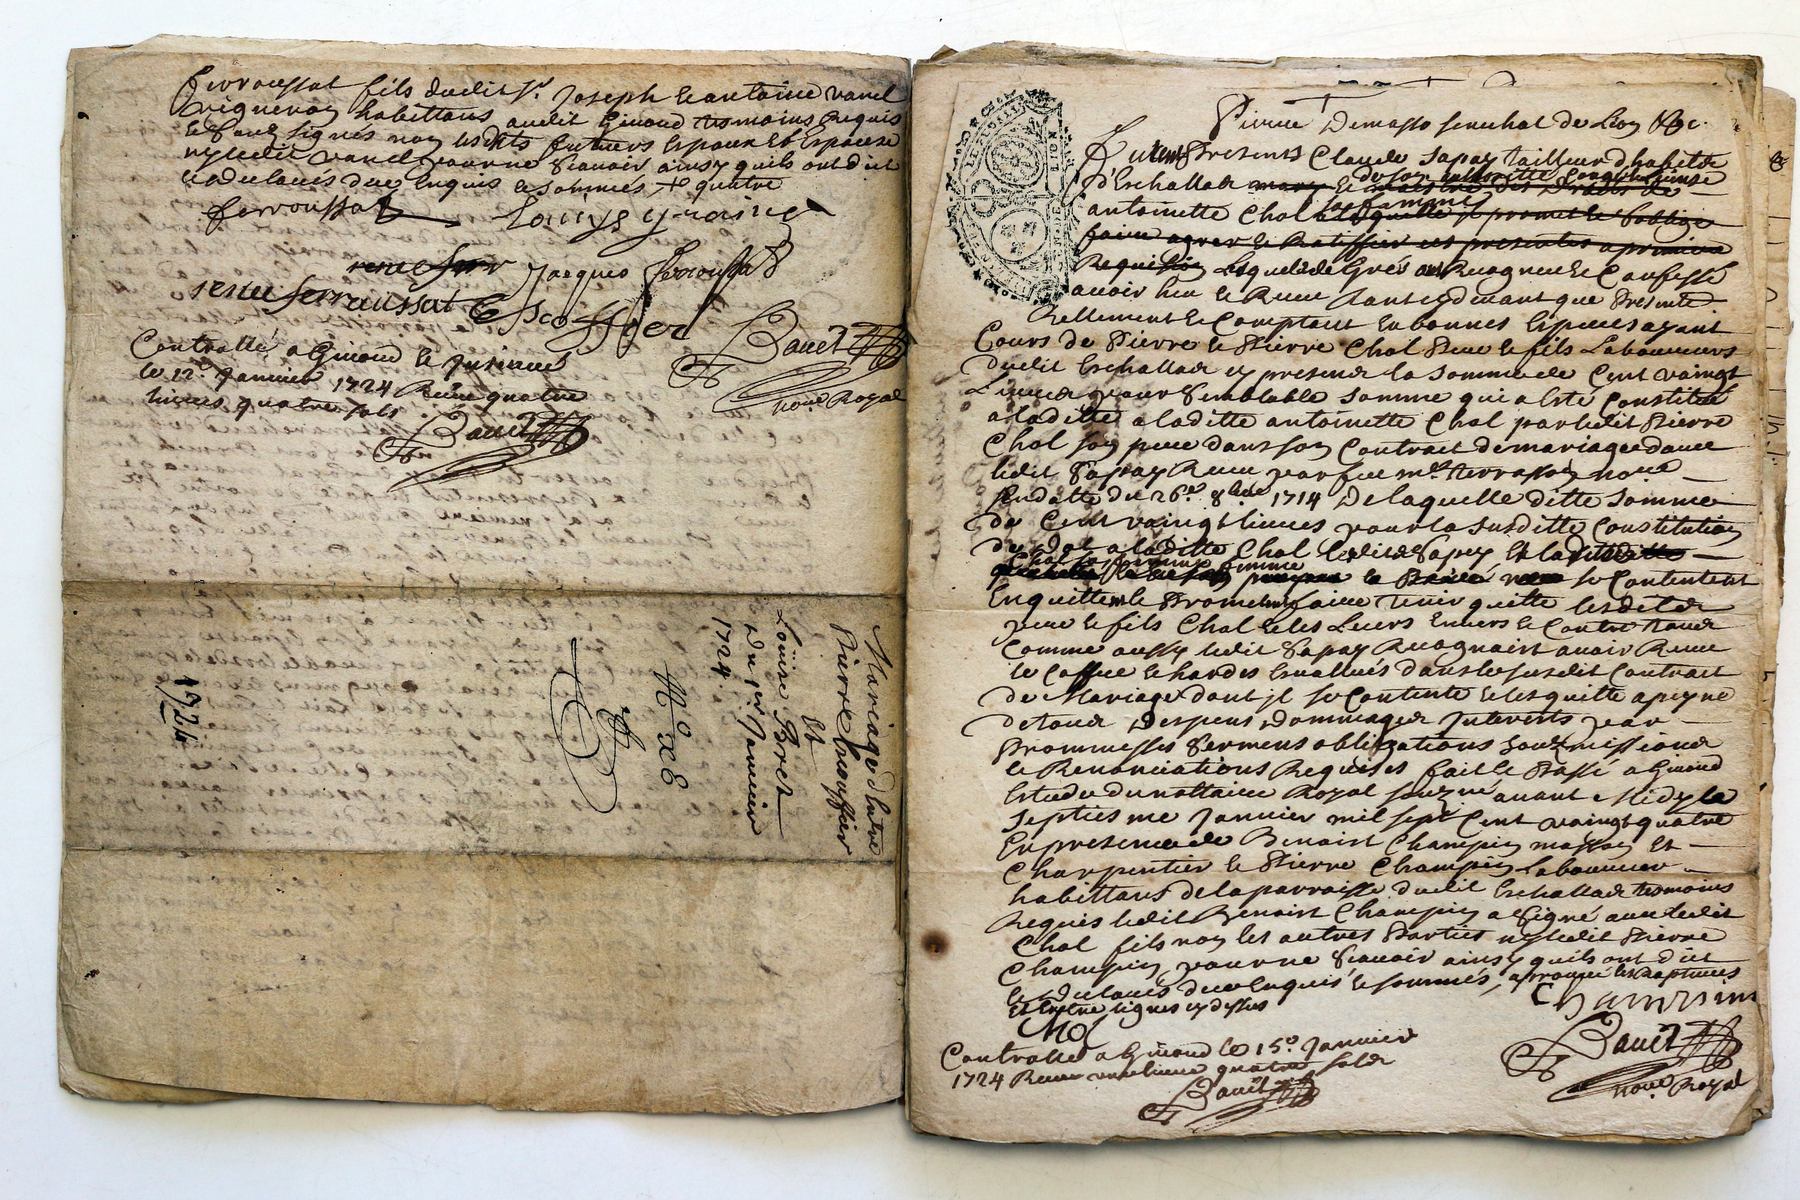 ferroussat fils dudit Sr. Joseph et antoine vanel
vigneron habittans audit Givord tesmoins requis
et Souz signés non lesdits futeurs Espoux et Espouse
ny ledit vanel pour ne scavoir ainsy quils ont dict
et declarés de ce Enquis et sommés quatre
ferroussat Louys
rene ferr Jacques ferroussat
rene ferroussat Escoffier
Bauet
nore Royal
Controllé a Givord le
le 12e Janvier 1724 Receu quatre
livres quatre sols
Bauet
Mariage d'Entre
Pierre Escoffier
Et
Louise Boret
Du 1er Janvier
1724
No xe
1724
Pierre Demasso senechal de Lion
furent Presents Claude Sapay tailleur d'habits
d'Eschallas et de son authorité
sa famme
antoinette Chol et laquelle il promet et s'oblige
faire agreer et Ratiffier ces presentes a premiere
Requisition Lesquels de Gré ont Recogneu et Confessé
avoir heu et Receu tant cydevant que Presente
Rellement et Comptant En bonnes Especes ayant
Cours de Pierre et Pierre Chol Pere et fils Laboureurs
dudit Eschallas cy present la somme de Cent vaingt
Livres pour Semblable somme qui a Esté Constitué
a ladite a laditte antoinette Chol par ledit Pierre
Chol son pere dans son Contrait de mariage avec
ledit Sapay Receu par feu me terrasson nore
sendatte du 26e 8bre 1714 De laquelle ditte somme
de Cent vaingt livres pour la susditte Constitution
de dot a laditte Chol ledit Sapay Et laditte
Chol sa femme se Contentent
Enquittent et Promettent faire tenir quitte lesdits
pere et fils Chol et les Leurs Envers et Contre tous
Comme aussy ledit Sapay Recognoist avoir Receu
le Coffre et hardes Enoncés dans le susdit Contrait
de Mariage dont jl se Contente et les quitte a peyne
de tous Despens Dommages Interests par
Prommesses Sermens obligations souzmissions
et Renonciations Requises fait et Passé a Givord
Estude du nottaire Royal souzne avant Midy le
septiesme Janvier mil sept Cent vaingt quatre
En presence de Benoist Champin masson Et
Charpentier et Pierre Champin Laboureur
habittans de la parroisse dudit Eschallas tesmoins
Requis ledit Benoist Champin a Signé avec ledit
Chol fils non les autres Parties ny ledit Pierre
Champin pour ne Scavoir ainsy quils ont dict
et declarés de ce Enquis et sommés, aprouvé les Raptures
Et Entre lignes cy dessus
Chol
Champin
Bauet
nore Royal
Controllé a Givord le 15e Janvier
1724 Receu une livre quatre sols
Bauet